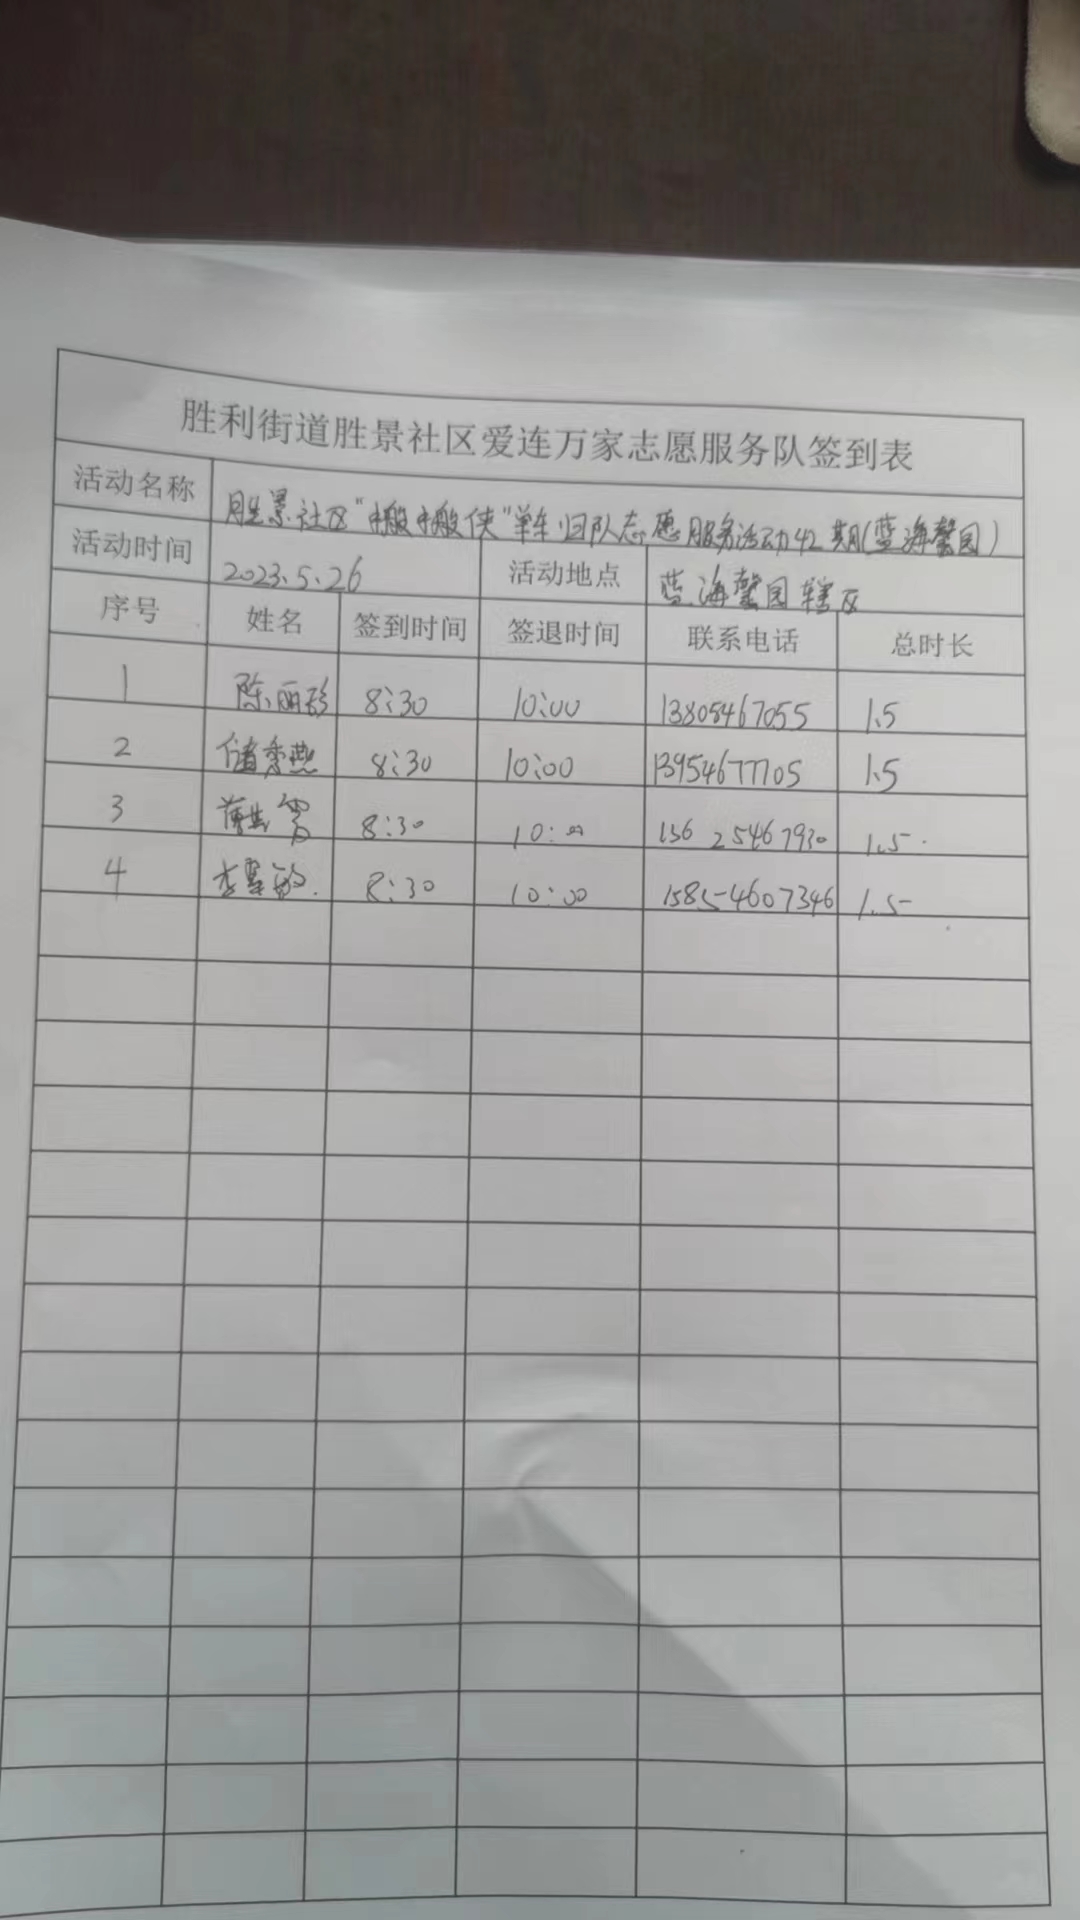 胜利街道胜景社区爱连万家志愿服务队签到表
活动名称 胜景社区“搬搬侠”单车归队志愿服务活动42期(蓝海馨园)
活动时间 2023.5.26 活动地点 蓝海馨园辖区
序号 姓名 签到时间 签退时间 联系电话 总时长
1 陈丽珍 8:30 10:00 13805467055 1.5
2 储秀燕 8:30 10:00 13954677705 1.5
3 8:30 10:00 13625467930 1.5
4 8:30 10:00 15854607346 1.5